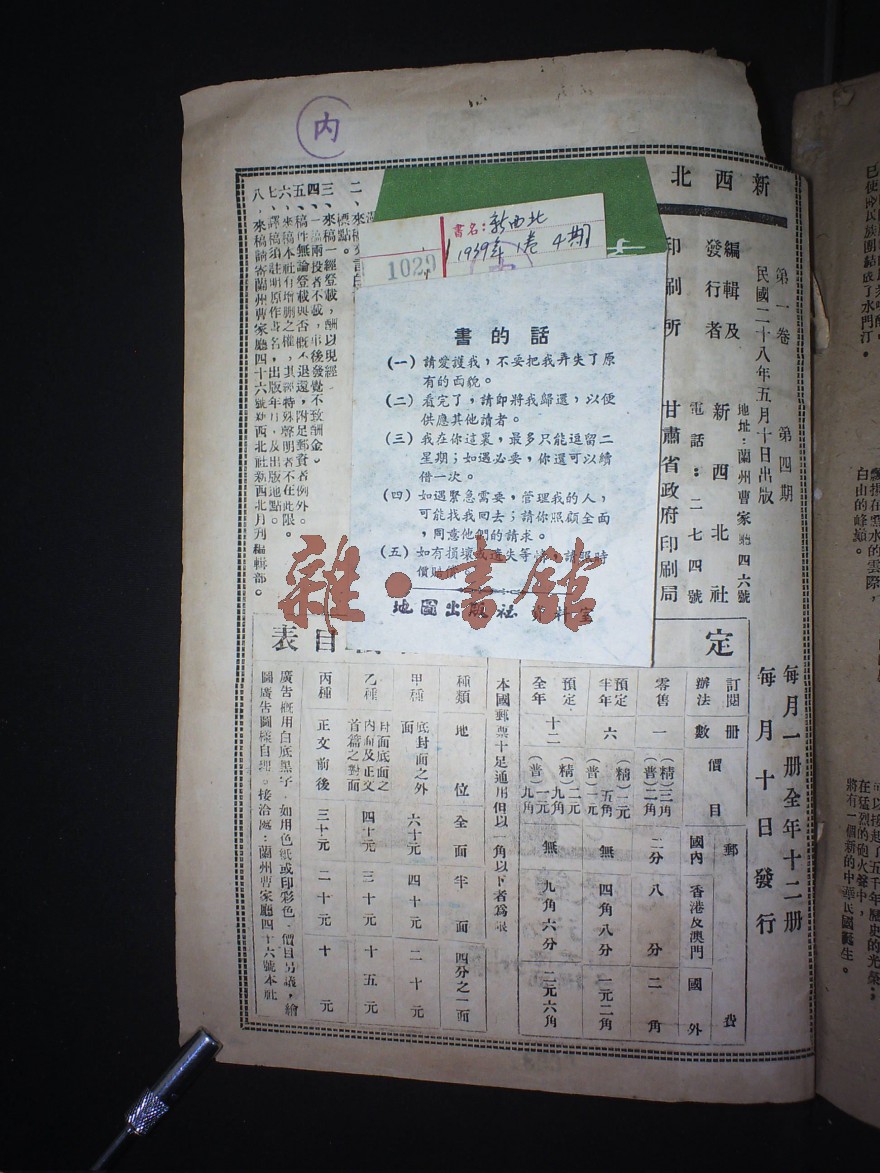 內
新西北
第一卷 第四期
民國二十八年五月十日出版
編輯及
發行者
新西北社
地址：蘭州曹家廳四六號
電話：二七四號
印刷所
甘肅省政府印刷局
每月一冊全年十二冊
每月十日發行
書名：新西北
1939年 1卷 4期
1029
書的話
(一) 請愛護我，不要把我弄失了原
有的面貌。
(二) 看完了，請即將我歸還，以便
供應其他讀者。
(三) 我在你這裏，最多只能逗留二
星期；如遇必要，你還可以續
借一次。
(四) 如遇緊急需要，管理我的人，
可能找我回去；請你照顧全面
，同意他們的請求。
(五) 如有損壞或遺失等情，請照時
價賠償
地圖出版社 資料室
雜·書館
二、
標點。
三、來稿一經登載，酬以現
四、一稿兩投者不載，事後發覺不致酬金。
五、稿件無論登載與否概不退還，附足郵資者例外。
六、來稿本社有增刪之權，其經特殊聲明者不在此限。
七、譯稿須註明原作書名，出版年月，及出版地點。
八、來稿請寄蘭州曹家廳四十六號新西北社新西北月刊編輯部。
定
訂閱辦法 冊數 價目 郵費
國內 香港及澳門 國外
零售 一 (精)三角 (普)二角 二分 八分 二角
預定半年 六 (精)一元五角 (普)一元 無 四角八分 一元二角
預定全年 十二 (精)二元九角 (普)一元九角 無 九角六分 二元六角
本國郵票十足通用但以一角以下者爲限
目表
種類 地位 全面 半面 四分之一面
甲種 底封面之外面 六十元 四十元 二十元
乙種 封面底面之內面及正文首篇之對面 四十元 三十元 十五元
丙種 正文前後 三十元 二十元 十元
廣告概用白底黑字，如用色紙或印彩色，價目另議，繪
圖廣告圖樣自理。接洽處：蘭州曹家廳四十六號本社
白山的峰巔。
在猛烈的砲火聲中，
將有一個新的中華民國誕生。